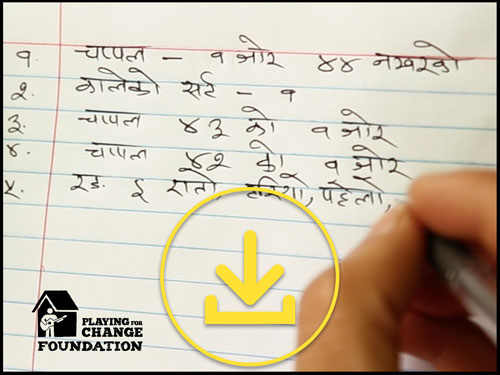 १. चप्पल - १ जोर ४४ नम्बरको
२. कालेको सर्ट - १
३. चप्पल ४३ को १ जोर
४. चप्पल ४२ को १ जोर
५. रङ्ग रातो, हरियो, पहेलो,
PLAYING FOR
CHANGE
FOUNDATION